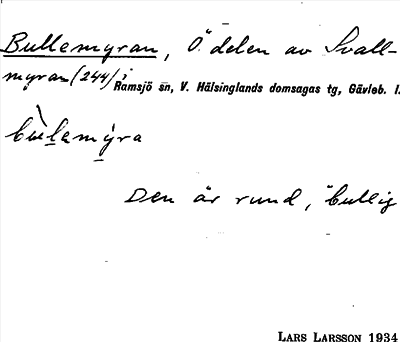 Bullemyran, Ö. delen av Svall-
myran (244) i
Ramsjö sn, V. Hälsinglands domsagas tg, Gävleb. l.
bùlemýra
Den är rund, "bullig
LARS LARSSON 1934